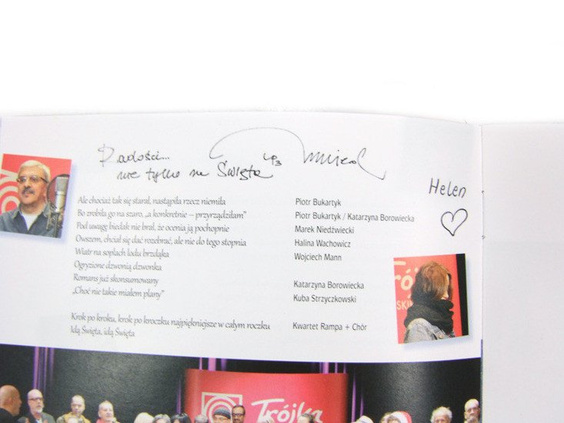 Radości...
nie tylko na Święta
Helen
Ale chociaż tak się starał, nastąpiła rzecz niemiła
Piotr Bukartyk
Bo zrobiła go na szaro, „a konkretnie – przyrządziłam”
Piotr Bukartyk / Katarzyna Borowiecka
Pod uwagę biedak nie brał, że ocenia ją pochopnie
Marek Niedźwiecki
Owszem, chciał się dać rozebrać, ale nie do tego stopnia
Halina Wachowicz
Wiatr na soplach lodu brzdąka
Wojciech Mann
Ogryzione dzwonią dzwonka
Romans już skonsumowany
Katarzyna Borowiecka
„Choć nie takie miałem plany”
Kuba Strzyczkowski
Krok po kroku, krok po kroczku najpiękniejsze w całym roczku
Kwartet Rampa + Chór
Idą Święta, idą Święta
Trójka